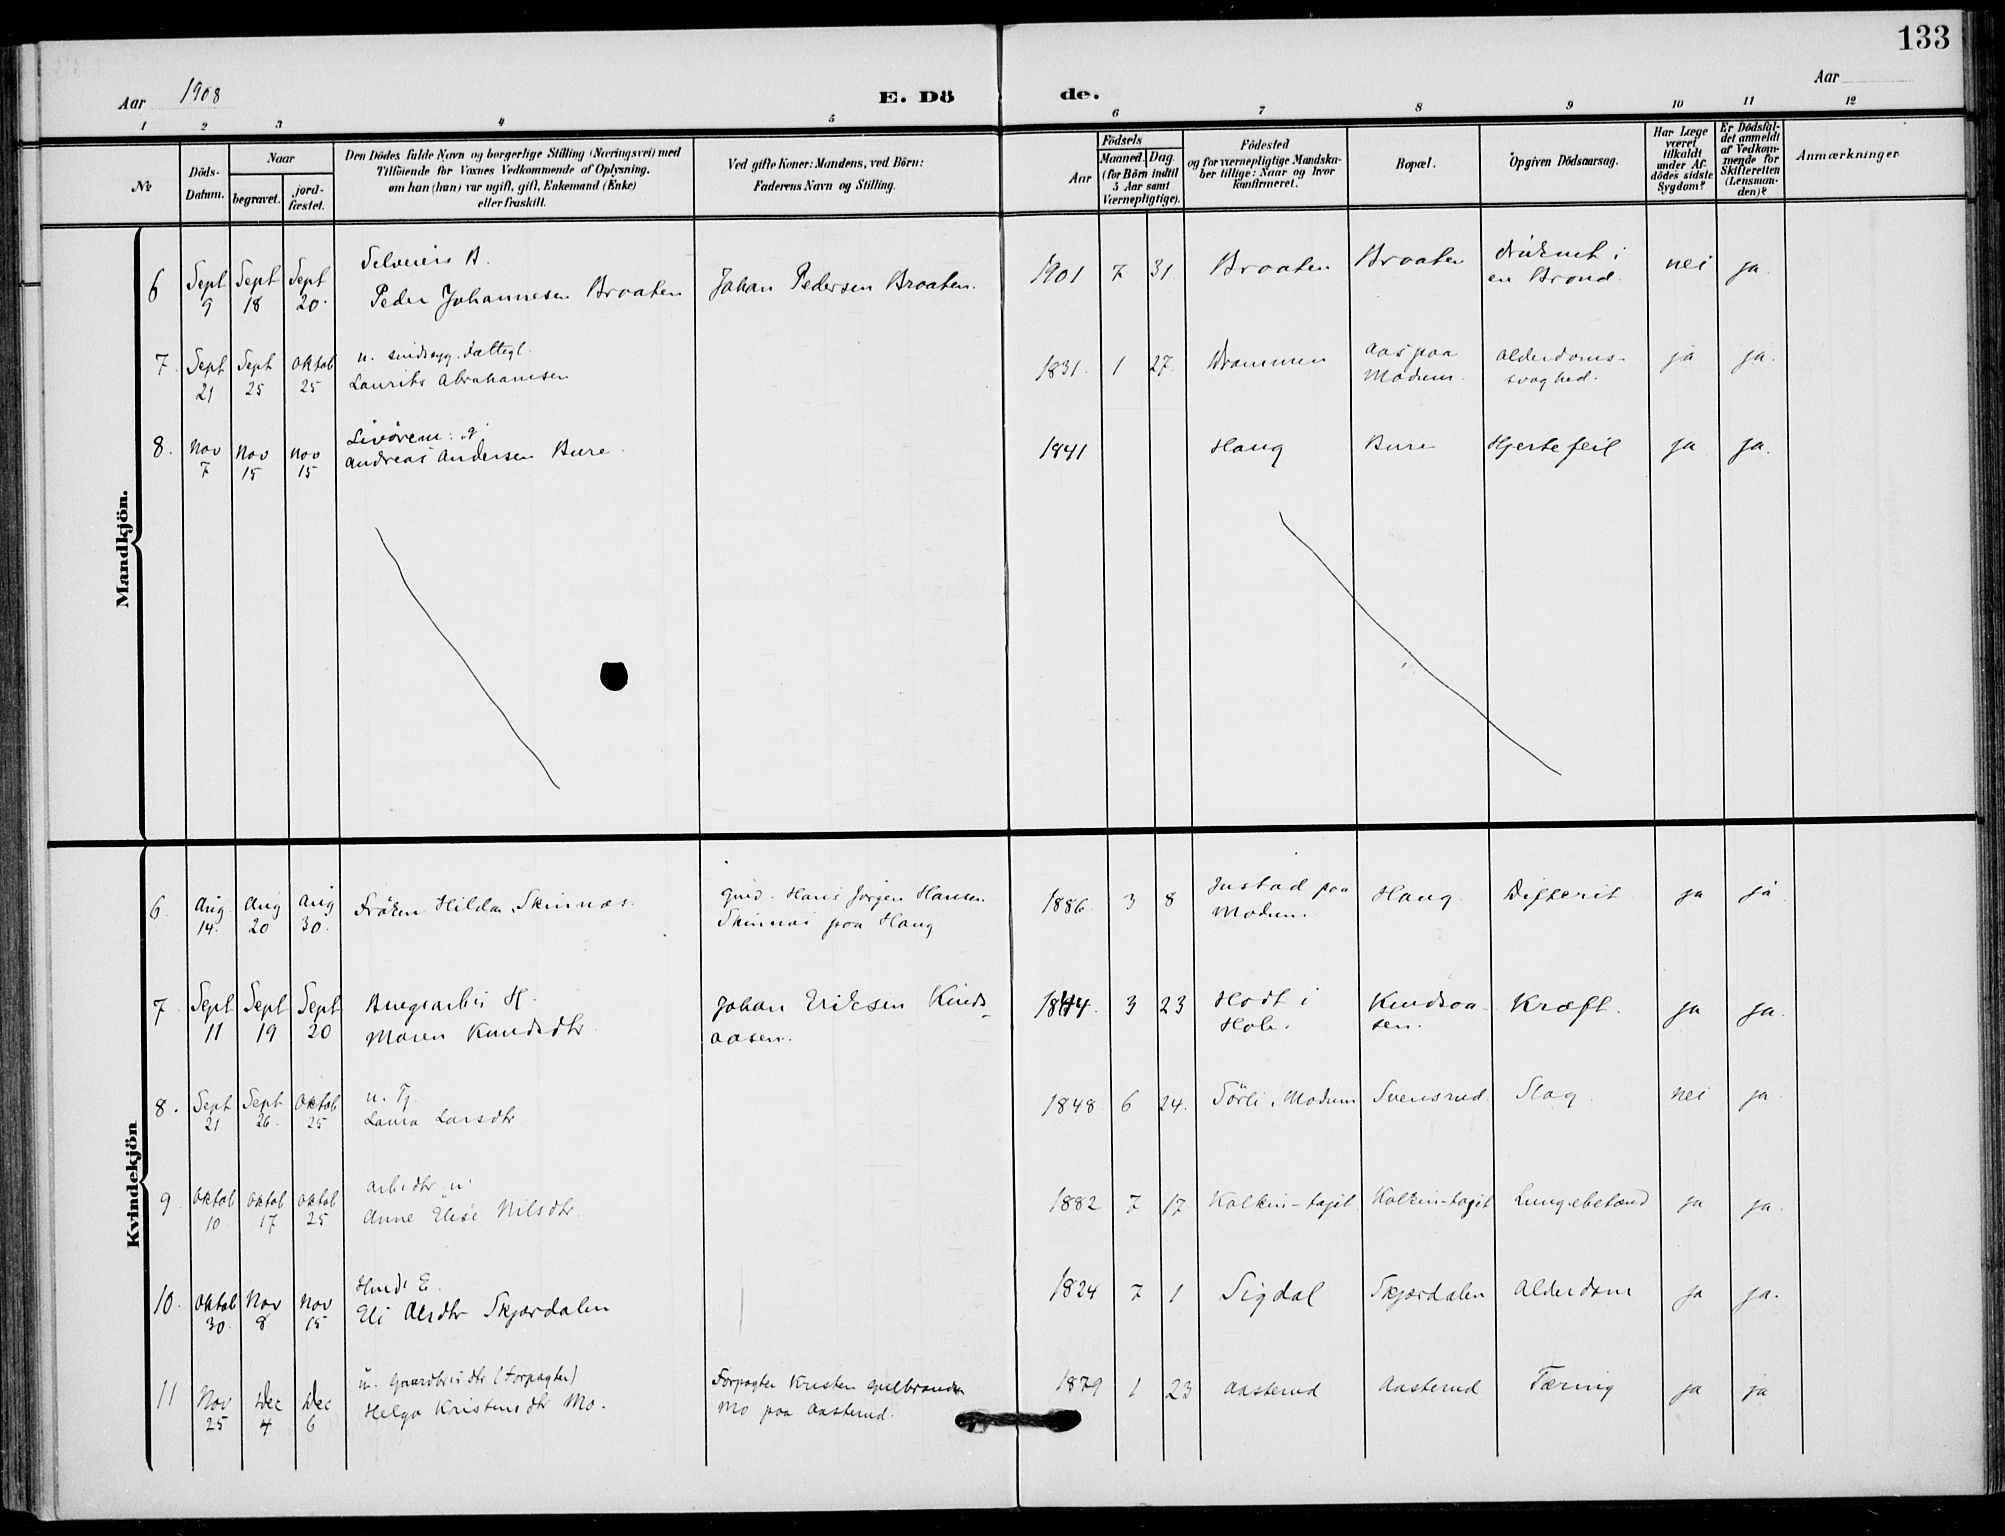 133
Aar 1908 E. Dö de. Aar
1 2 3 4 5 6 7 8 9 10 11 12
№
Döds-Datum.
Naar
begravet.
jord-fæstet.
Den Dödes fulde Navn og borgerlige Stilling (Næringsvei) med
Tilföiende for Voxnes Vedkommende af Oplysning,
om han (hun) var ugift, gift, Enkemand (Enke)
eller fraskilt.
Ved gifte Koner: Mandens, ved Börn:
Faderens Navn og Stilling.
Aar
Födsels
Maaned. Dag.
(for Börn indtil
5 Aar samt
Værnepligtige).
Födested
og for værnepligtige Mandska-
ber tillige: Naar og hvor
konfirmeret.
Bopæl.
Opgiven Dödsaarsag.
Har Læge
været
tilkaldt
under Af-
dödes sidste
Sygdom?
Er Dödsfal-
det anmeldt
af Vedkom-
mende for
Skifteretten
(Lensman-
den)?
Anmærkninger.
Mandkjön.
6 Sept 9 Sept 18 Sept 20. Selveiers B.
Peder Johannesen Braaten Johan Pedersen Braaten. 1901 7 31 Braaten Braaten druknet i
en Brönd. nei ja.
7. Sept 21 Sept 25 Oktob 25 u. sindssyg. fattigl.
Laurits Abrahamsen 1831. 1 27. Drammen Aas paa
Modum. Alderdoms-
svaghed. ja ja.
8. Nov 7 Nov 15 Nov 15
Andreas Andersen Bure. 1841 Haug Bure Hjertefeil ja ja.
Kvindekjön
6. Aug. 14. Aug 20 Aug 30. Fröken Hilda Skinnes. Gmd. Hans Jörgen Hansen
Skinnes paa Haug 1886. 3 8 paa
Modum. Haug. Difterit ja ja
7 Sept 11 Sept 19 Sept 20 H.
Maren Knudsdtr. Johan Eriksen Knuds-
aasen. 1844. 3 23 i
Hole. Knudsaa-
sen. Kræft. ja ja.
8. Sept 21 Sept 26. Oktob 25 u. Tj.
Laura Larsdtr 1848. 6 24. Modum Svensrud. Slag. nei ja
9. Oktob 10 Oktob 17 Oktob 25 arb.dtr u.
Anne Elise Nilsdtr. 1882 7 17 Lungebetænd ja ja.
10. Oktob 30. Nov 8 Nov 15 E.
Eli Olsdtr Skjærdalen 1824 7 1 Sigdal Skjærdalen Alderdom ja ja.
11 Nov 25 Dec 4 Dec 6 u. Gaardbr.s dtr (Forpagter)
Helga Kristensdtr Mo. Forpagter Kristen Gulbrandsen
Mo paa Aasterud. 1879 1 23 Aasterud Aasterud Tæring ja ja